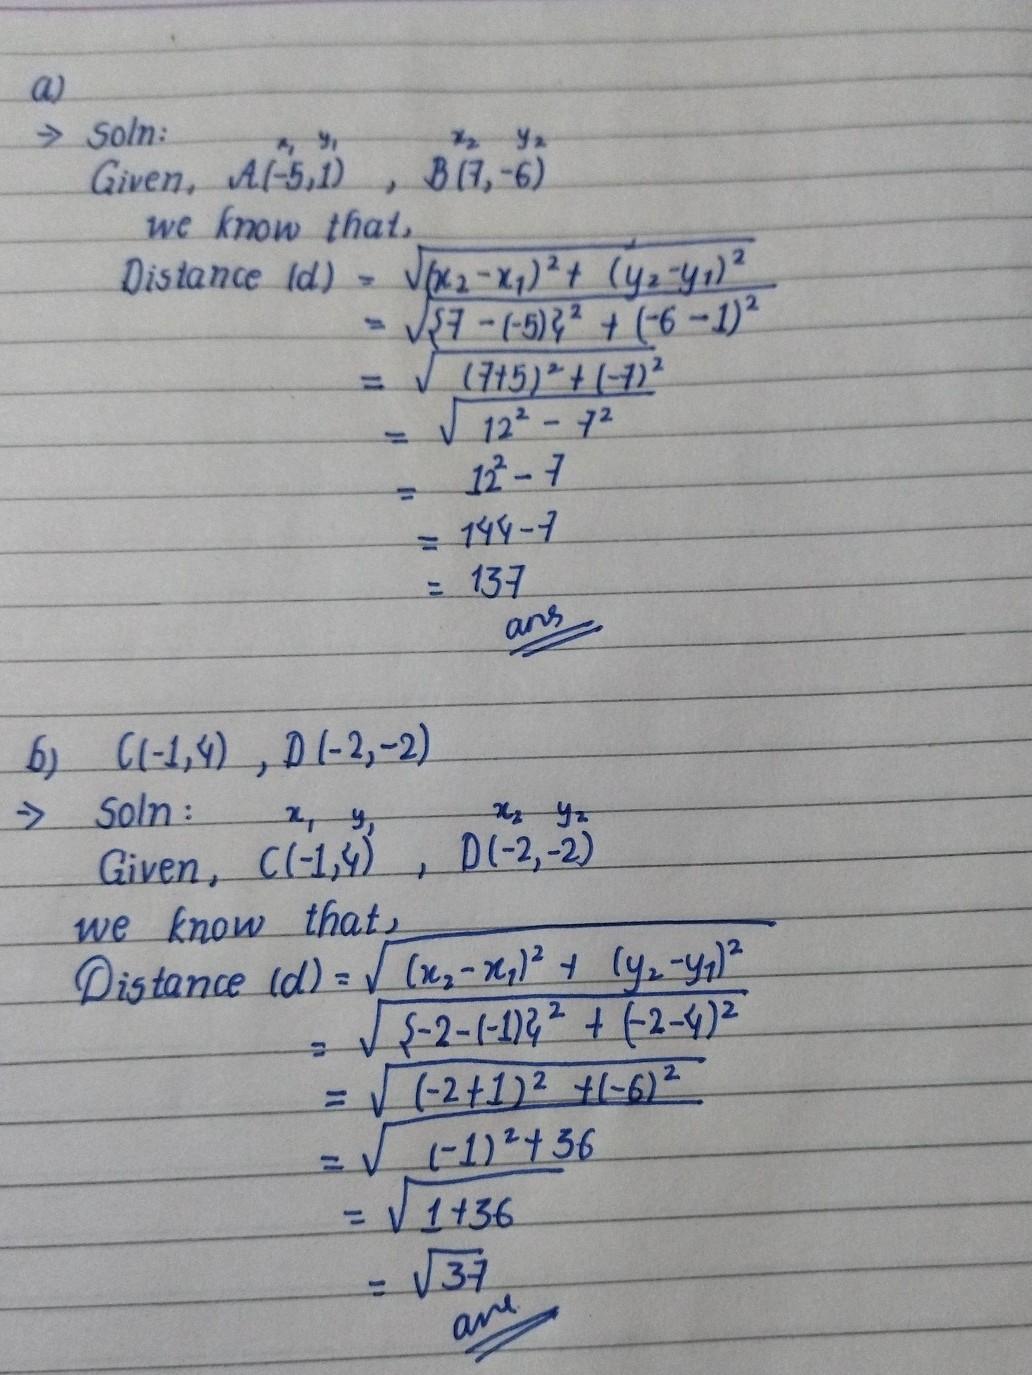 a)
→ Soln:
x₁ y₁ x₂ y₂
Given, A(-5,1) , B(7,-6)
we know that,
Distance (d) = √(x₂-x₁)² + (y₂-y₁)²
= √{7-(-5)}² + (-6-1)²
= √(7+5)² + (-7)²
= √12² - 7²
= 12² - 7
= 144-7
= 137
ans
b) C(-1,4) , D(-2,-2)
→ Soln:
x₁ y₁ x₂ y₂
Given, C(-1,4) , D(-2,-2)
we know that,
Distance (d) = √(x₂-x₁)² + (y₂-y₁)²
= √{-2-(-1)}² + (-2-4)²
= √(-2+1)² + (-6)²
= √(-1)² + 36
= √1+36
= √37
ans